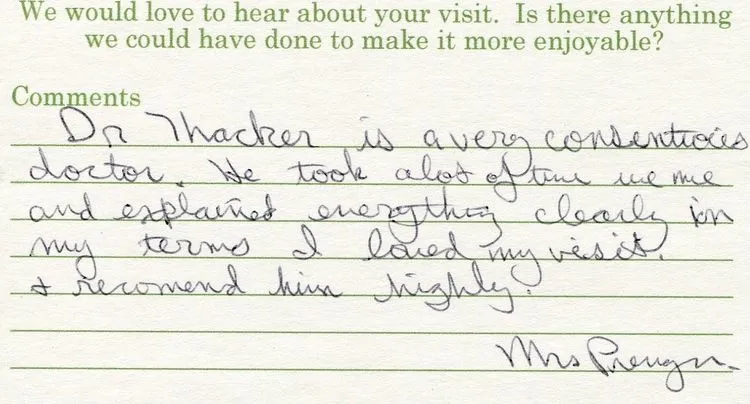 We would love to hear about your visit. Is there anything
we could have done to make it more enjoyable?
Comments
Dr Thacker is a very consentioies
doctor. He took alot of time we me
and explained everything clearly in
my terms I loved my visit.
I recomend him highly.
Mrs